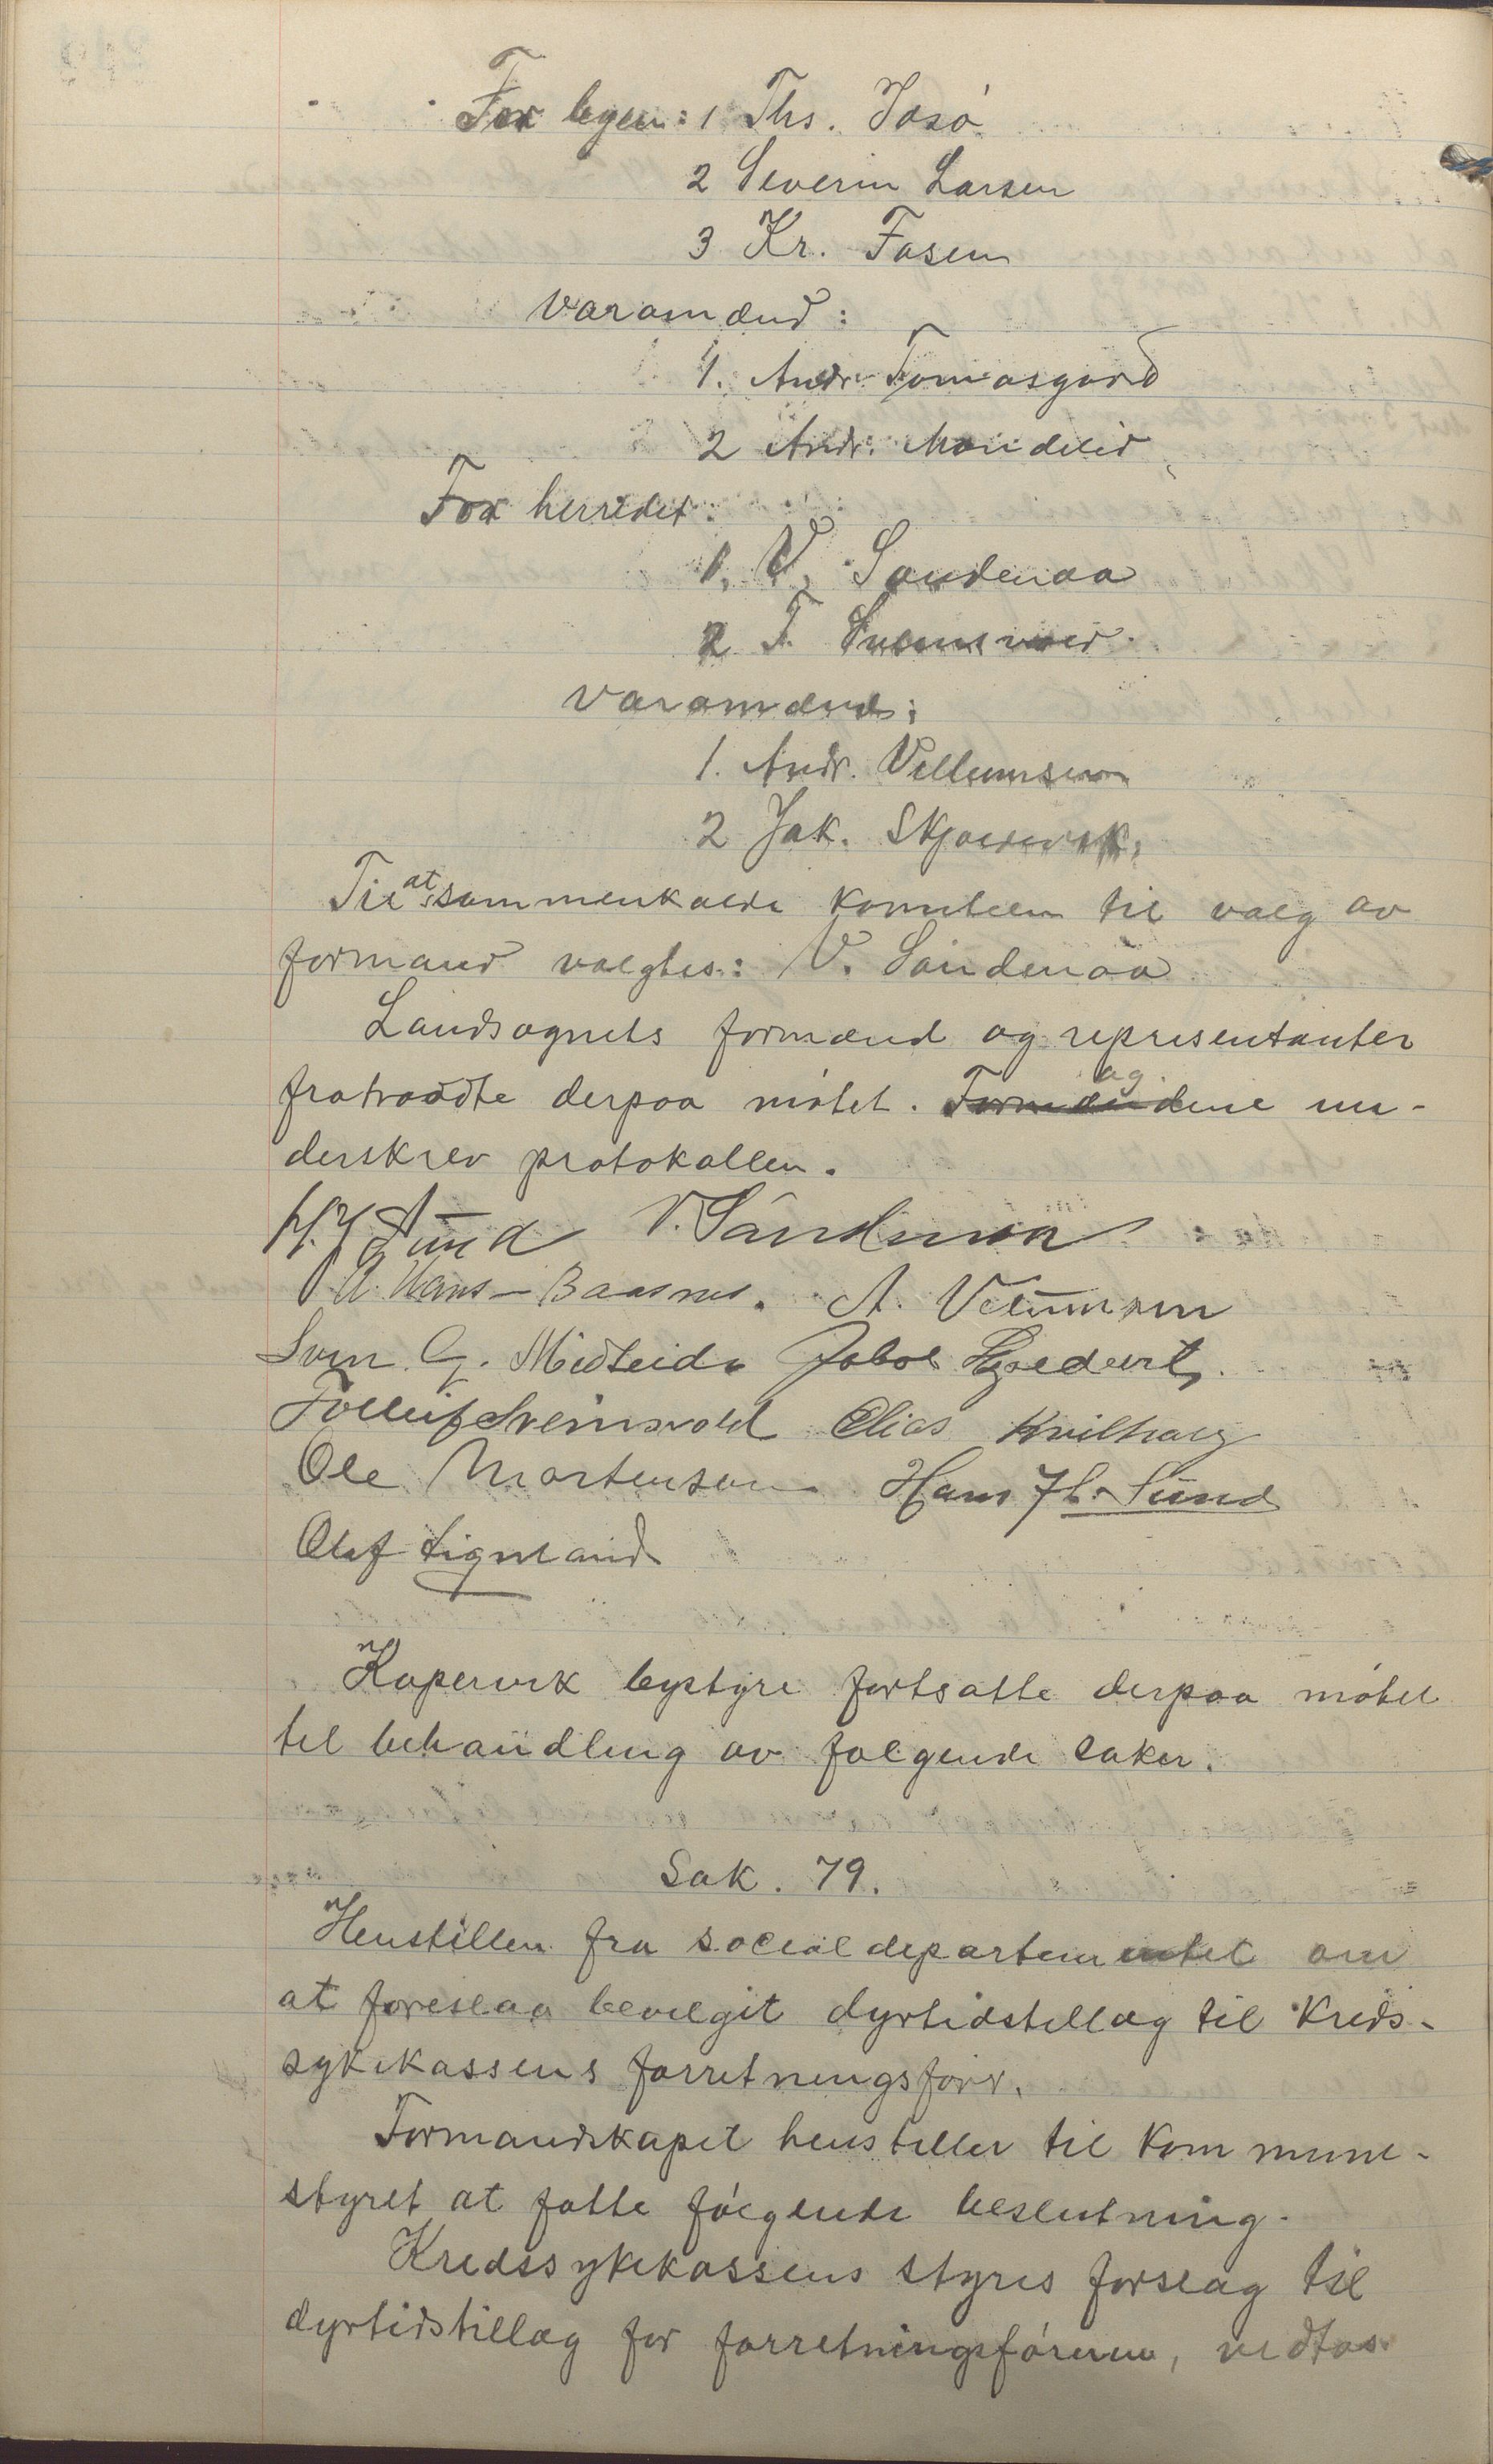 For byen: 1 Ths. Josø
2 Severin Larsen
3 Kr. Fosen
Varamænd:
1. Andr. Tomasgard
2 Andr. Mandelid
For herredet:
1. V. Sandenaa
2 T. Sveinsvold
Varamænd:
1. Andr. Vellumsen
2 Jak. Skjoldevik.
Til at sammenkalde komiteen til valg av
formand valgtes: V. Sandenaa
Landsognets formænd og representanter
fratraadte derpaa møtet. Formændene un-
derskrev protokollen.
Sund V. Sandenaa
A. Hans-Baasnes. A. Velumsen
Sven G. Midteide Jakob
Tolleif Sveinsvold Elias Kvilhaug
Ole Mortensen Hans Th. Sund
Olaf Sigmand
Kopervik bystyre fortsatte derpaa møtet
til behandling av følgende saker.
Sak. 79.
Henstillen fra socialdepartementet om
at foreslaa bevilget dyrtidstillæg til Kreds-
sykekassens forretningsfører.
Formandskapet henstiller til Kommune-
styret at fatte følgende beslutning.
Kredssykekassens styres forslag til
dyrtidstillæg for forretningsføreren, vedtas